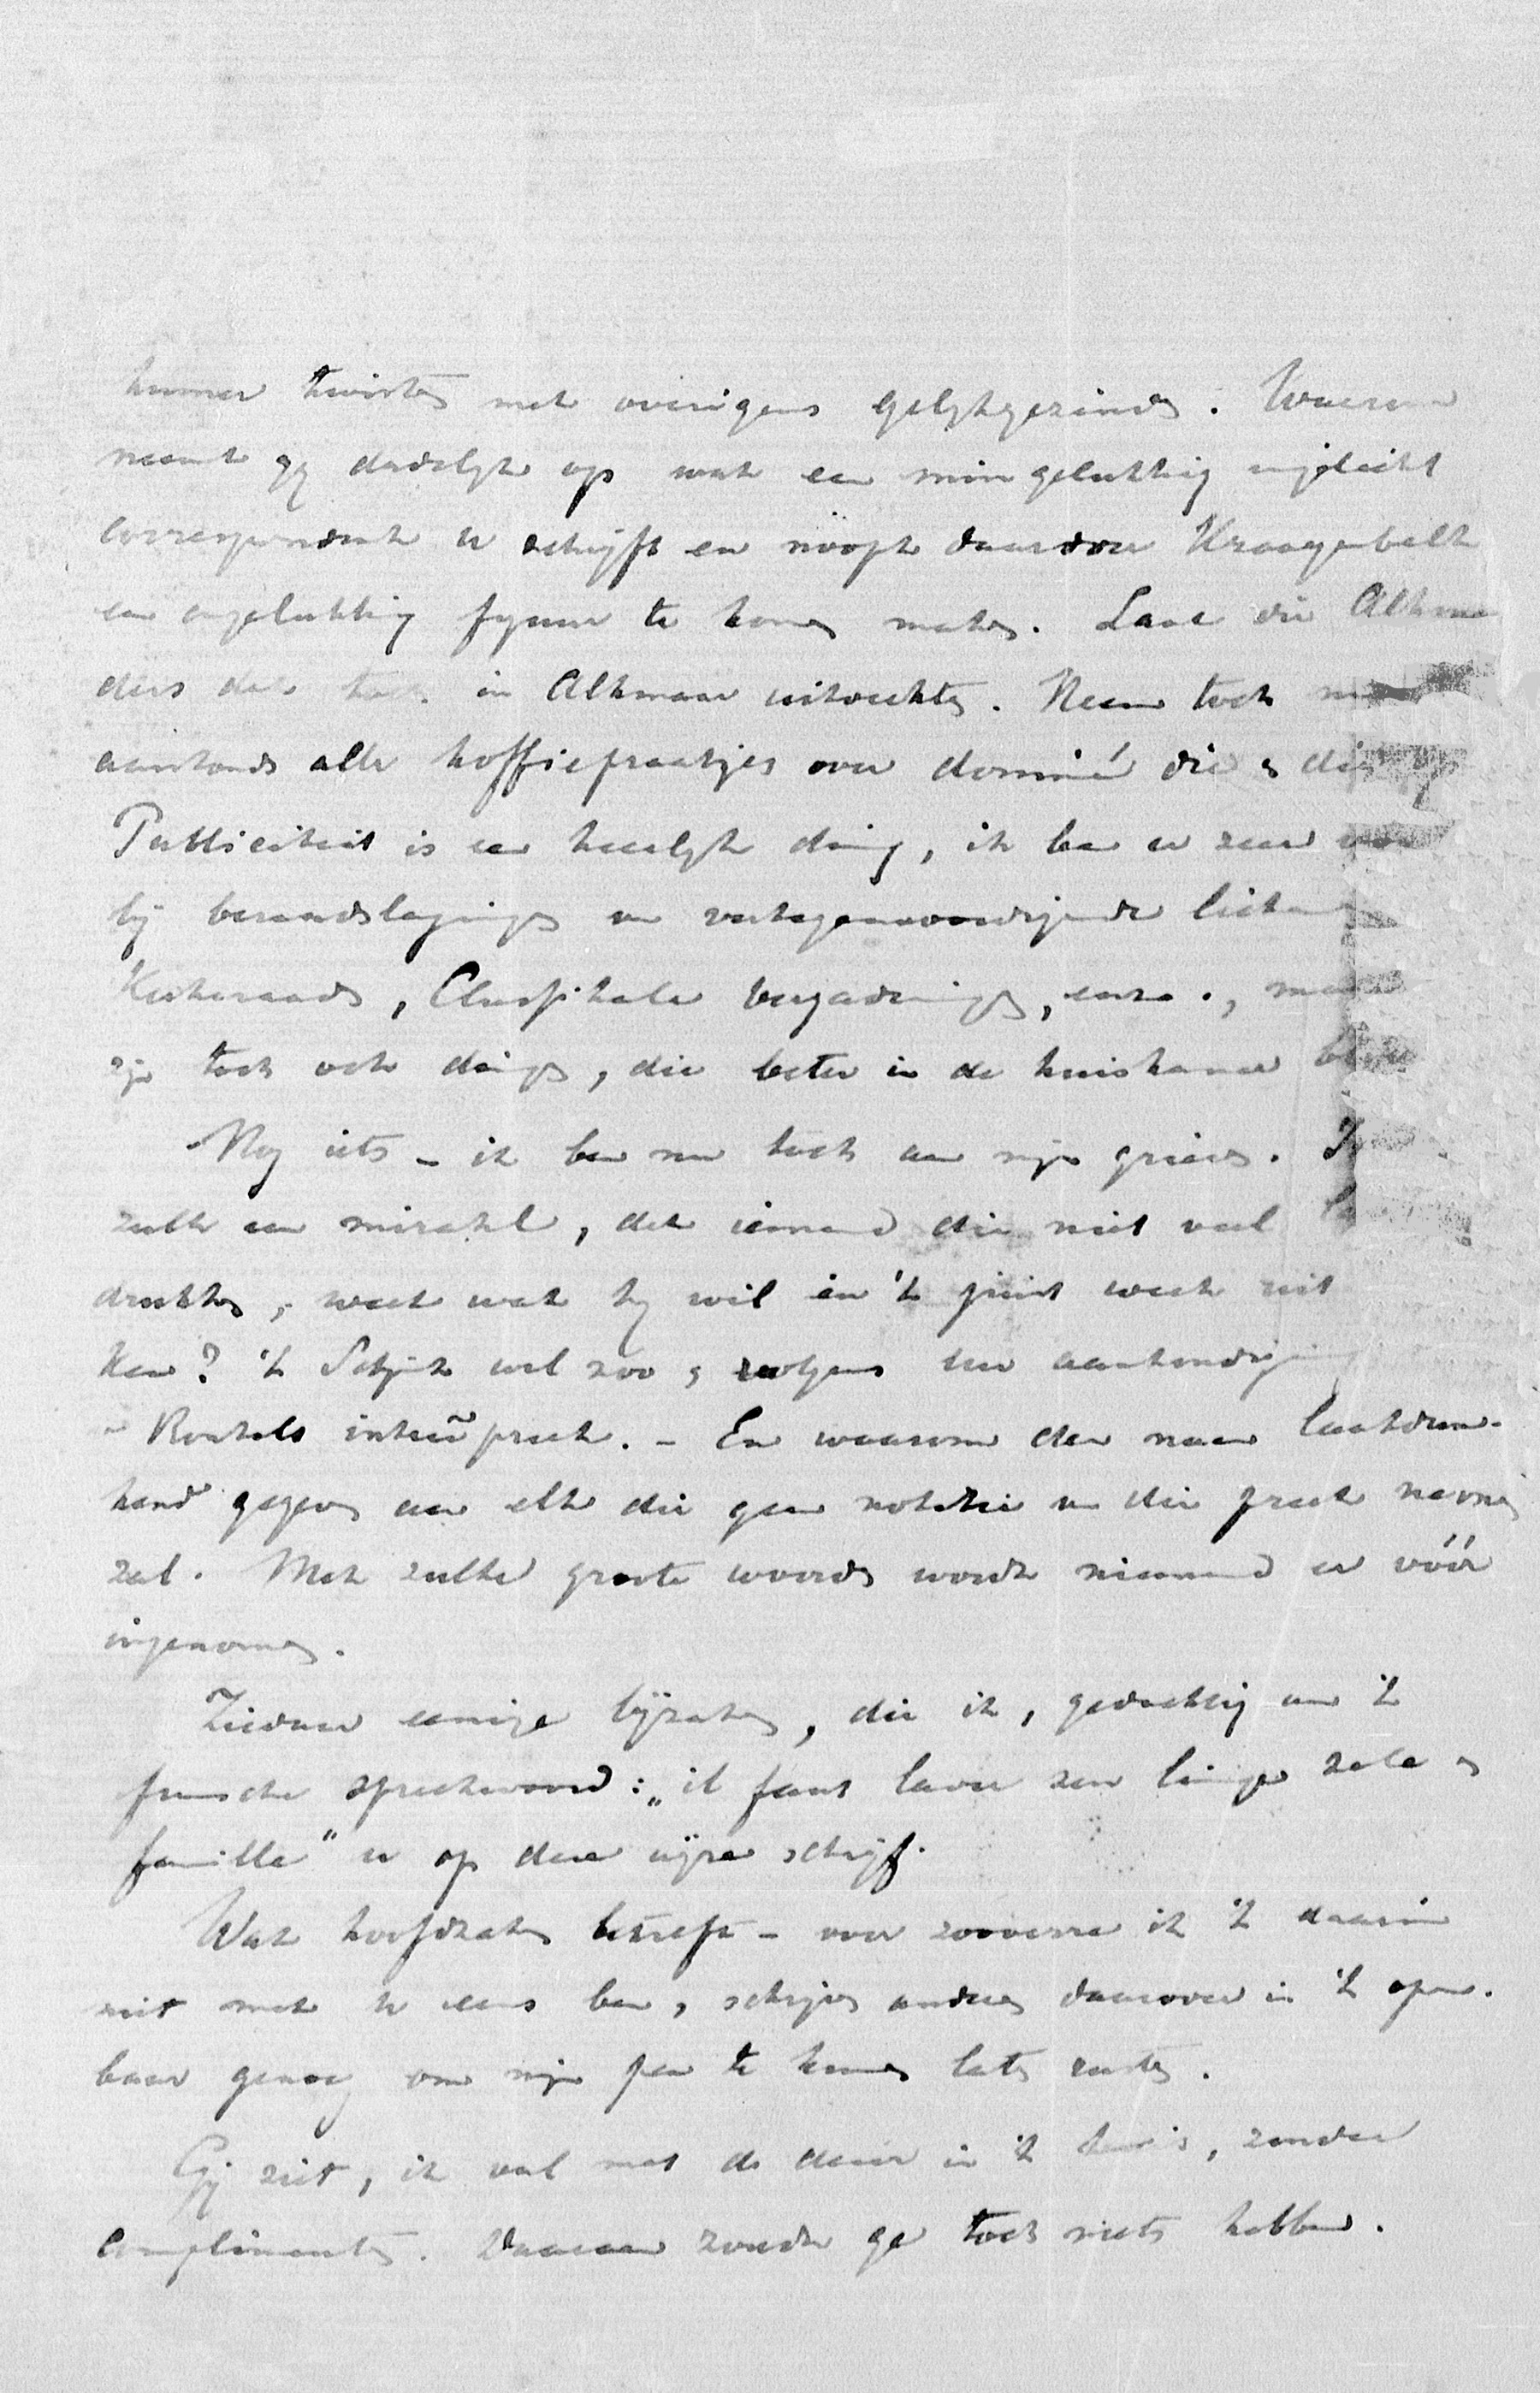 kunner twisten met overigens gelijkgezinden. Waarom
neemt gij dadelijk op wat een min gelukkig ingelicht
correspondent u schrijft en noopt daardoor Kraagenbelt
een ongelukkig figuur te komen maken. Laat die Alkmaar
ders dat toch in Alkmaar uitvechten. Neem toch niet
aanstonds alle koffiepraatjes over dominé die en die op
Publiciteit is een heerlijk ding, ik ben er zeer voor
bij beraadslagingen van vertegenwoordigende licham
Kerkeraads, Classikale vergaderingen, enz., maar
zijn toch ook dingen, die beter in de huiskamer blijven
Nog iets – ik ben nu toch aan mijn grieven. Is
zulk een mirakel, dat iemand die niet veel
drukken, weet wat hij wil en 't juist weet uit
ken? 't Schijnt wel zoo, volgens uw aankondiging
Ronkels intreêpreek. – En waarom dan naar laatdun-
kend gegeven aan elk die geen notitie van die preek nemen
zal. Met zulke groote woorden wordt niemand er vóór
ingenomen.
Ziedaar eenige bijzaken, die ik, gedachtig aan 't
fransche spreekwoord: „il faut laver son linge sale en
famille" u op deze wijze schrijf.
Wat hoofdzaken betreft – voor zooverre ik 't daarin
niet met u eens ben, schrijven anderen daarover in 't open-
baar genoeg om mijn pen te kunnen laten rusten.
Gij ziet, ik val met de deur in 't huis, zonder
complimenten. Daaraan zoudt ge toch niets hebben.